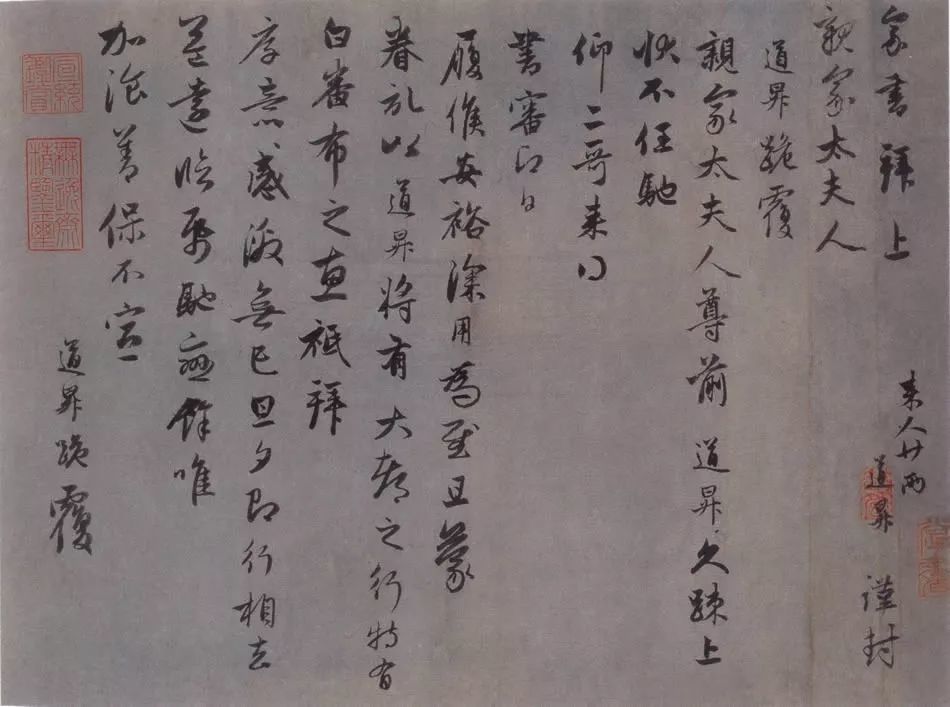 家書拜上
親家太夫人
來人廿兩
道昇 謹封
道昇跪覆
親家太夫人尊前 道昇久疎上
狀不任馳
仰二哥來得
書審即日
履候安裕深用為慰且蒙
眷記以道昇將有大都之行特有
白番布之惠祗拜
厚意感激無已旦夕即行相去
益遠臨馳戀餘唯
加湌善保不宣
道昇跪覆
宣統鑒賞
無逸齋精鑒璽